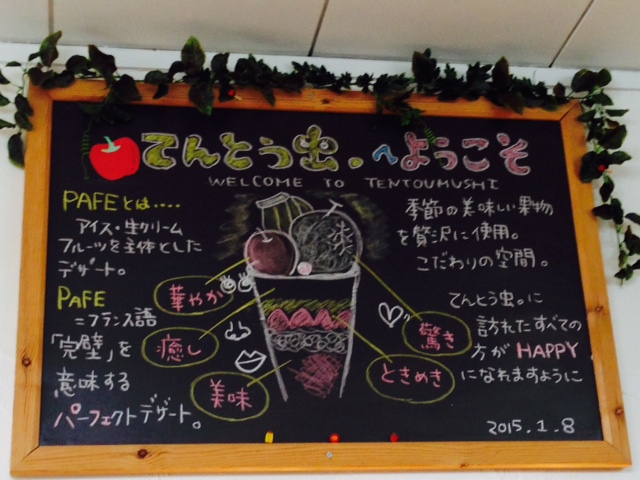 てんとう虫。へようこそ
WELCOME TO TENTOUMUSHI
PAFEとは‥‥
アイス・生クリーム
フルーツを主体とした
デザート。
PAFE
=フランス語
「完璧」を
意味する
パーフェクトデザート。
華やか
癒し
美味
驚き
ときめき
季節の美味しい果物
を贅沢に使用。
こだわりの空間。
てんとう虫。に
訪れたすべての
方がHAPPY
になれますように
2015.1.8